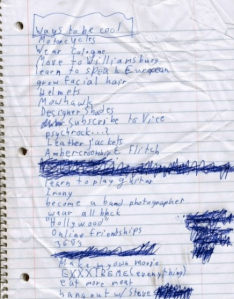 Ways to be cool
Motorcycles
wear cologne
Move to Williamsburg
learn to speak European
grow facial hair
Helmets
Mowhawk
Designer Shades
Subscribe to Vice
psychrock...?
Leather jackets
Ambercrombie & Flitch
learn to play guitar
Irony
become a band photographer
wear all black
"Hollywood"
Online friendships
Make my own movie
EXXXTREME (everything)
eat more meat
hang out w/Steve